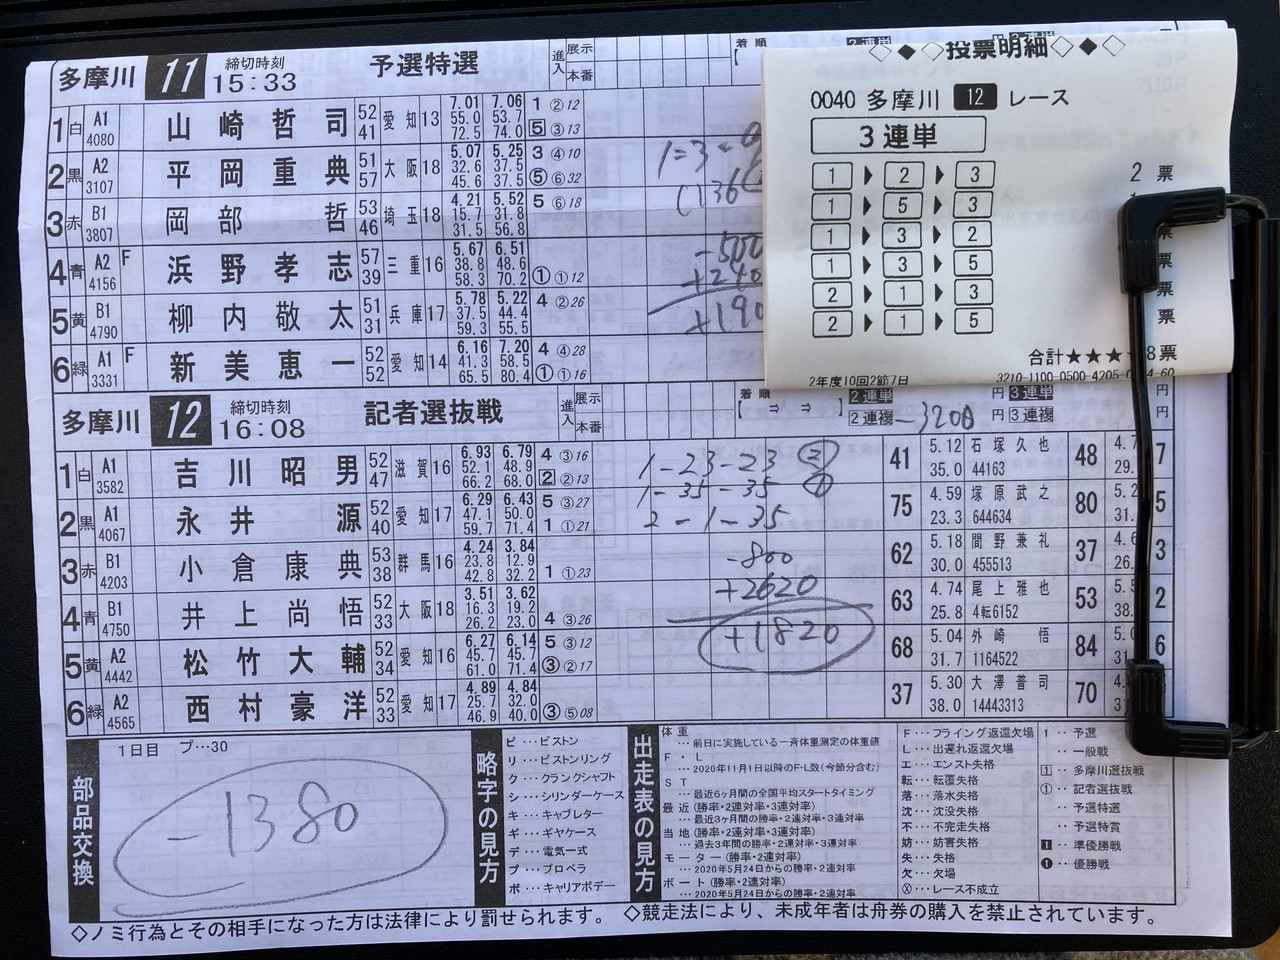 多摩川 11 締切時刻 15:33 予選特選 進入 展示 本番 着順
1 白 A1 4080 山崎哲司 52 41 愛知 13 7.01 55.0 72.5 7.06 53.7 74.0 1 ②12 5 ③13
2 黒 A2 3107 平岡重典 51 57 大阪 18 5.07 32.6 45.6 5.25 37.5 37.5 3 ④10 ⑤ ⑥32
3 赤 B1 3807 岡部哲 53 46 埼玉 18 4.21 15.7 31.5 5.52 31.8 56.8 5 ⑥18
4 青 A2 4156 F 浜野孝志 57 39 三重 16 5.67 38.8 58.3 6.51 48.6 70.2 ① ①12
5 黄 B1 4790 柳内敬太 51 31 兵庫 17 5.78 37.5 59.3 5.22 44.4 55.5 4 ②26
6 緑 A1 3331 F 新美恵一 52 52 愛知 14 6.16 41.3 65.5 7.20 58.5 80.4 4 ④28 ① ①16
-500
◇◆◇投票明細◇◆◇
0040 多摩川 12 レース
3連単
1 ▶ 2 ▶ 3 2票
1 ▶ 5 ▶ 3
1 ▶ 3 ▶ 2 票
1 ▶ 3 ▶ 5 票
2 ▶ 1 ▶ 3 票
2 ▶ 1 ▶ 5 票
合計★★★ 8票
2年度10回2節7日
多摩川 12 締切時刻 16:08 記者選抜戦 進入 展示 本番 着順【 ⇒ ⇒ 】 2連単 円 3連単 円
2連複 -3200 円 3連複 円
1 白 A1 3582 吉川昭男 52 47 滋賀 16 6.93 52.1 66.2 6.79 48.9 68.0 4 ③16 2 ②13 1-23-23 ② 41 5.12 35.0 石塚久也 44163 48
2 黒 A1 4067 永井源 52 40 愛知 17 6.29 47.1 59.7 6.43 50.0 71.4 5 ③27 1 ①21 1-35-35 ① 75 4.59 23.3 塚原武之 644634 80
2-1-35
3 赤 B1 4203 小倉康典 53 38 群馬 16 4.24 23.8 42.8 3.84 12.9 32.2 1 ①23 -800 62 5.18 30.0 間野兼礼 455513 37
4 青 B1 4750 井上尚悟 52 33 大阪 18 3.51 16.3 26.2 3.62 19.2 23.0 4 ③26 +2620 63 4.74 25.8 尾上雅也 4転6152 53
5 黄 A2 4442 松竹大輔 52 34 愛知 16 6.27 45.7 61.0 6.14 45.7 71.4 5 ③12 ③ ②17 +1820 68 5.04 31.7 外崎悟 1164522 84
6 緑 A2 4565 西村豪洋 52 33 愛知 17 4.89 25.7 46.9 4.84 32.0 40.0 ③ ⑤08 37 5.30 38.0 大澤普司 14443313 70
部品交換
1日目 プ…30
-1380
略字の見方
ピ…ピストン
リ…ピストンリング
ク…クランクシャフト
シ…シリンダーケース
キ…キャブレター
ギ…ギヤケース
デ…電気一式
プ…プロペラ
ボ…キャリアボデー
出走表の見方
体重
…前日に実施している一斉体重測定の体重値
F・L
…2020年11月1日以降のF・L数(今節分含む)
ST
…最近6ヶ月間の全国平均スタートタイミング
最近(勝率・2連対率・3連対率)
…最近3ヶ月間の勝率・2連対率・3連対率
当地(勝率・2連対率・3連対率)
…過去3年間の勝率・2連対率・3連対率
モーター(勝率・2連対率)
…2020年5月24日からの勝率・2連対率
ボート(勝率・2連対率)
…2020年5月24日からの勝率・2連対率
F…フライング返還欠場
L…出遅れ返還欠場
エ…エンスト失格
転…転覆失格
落…落水失格
沈…沈没失格
不…不完走失格
妨…妨害失格
失…失格
欠…欠場
Ⓧ…レース不成立
1 ‥予選
‥一般戦
1 ‥多摩川選抜戦
① ‥記者選抜戦
‥予選特選
‥予選特賞
1 ‥準優勝戦
❶ ‥優勝戦
◇ノミ行為とその相手になった方は法律により罰せられます。 ◇競走法により、未成年者は舟券の購入を禁止されています。